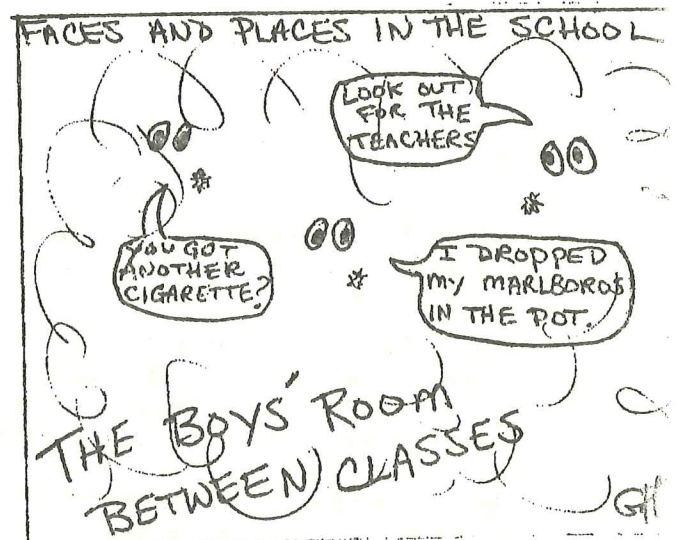 FACES AND PLACES IN THE SCHOOL
LOOK OUT
FOR THE
TEACHERS
YOU GOT
ANOTHER
CIGARETTE?
I DROPPED
MY MARLBOROS
IN THE POT.
THE BOYS' ROOM
BETWEEN CLASSES
GH